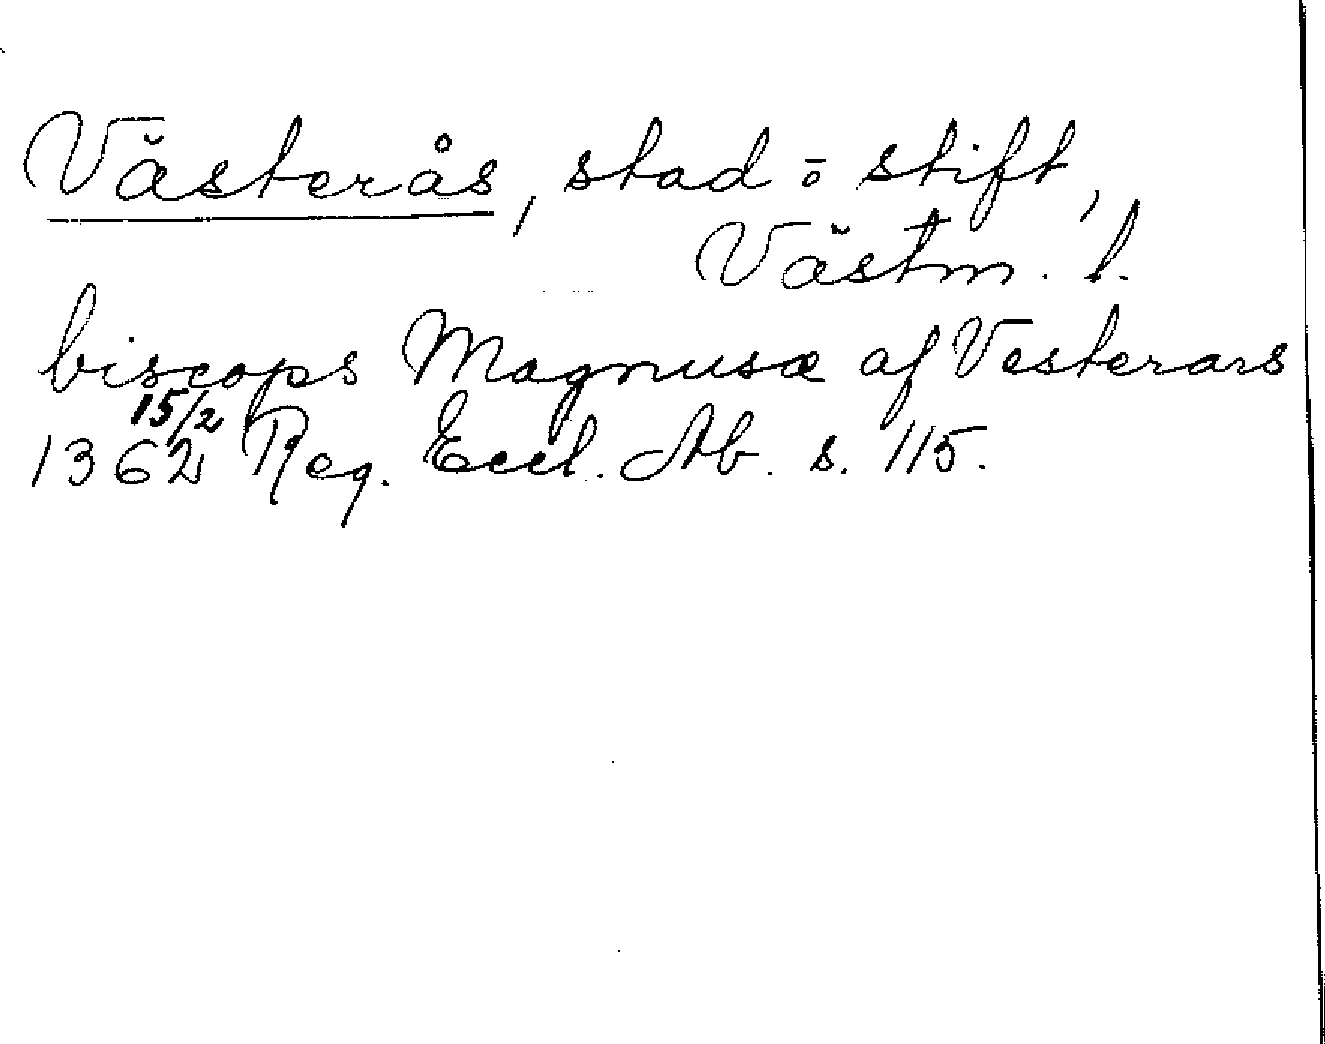 Västerås, stad o stift,
Västm. l.
biscops Magnusæ af Vesterars
15/2
1362 Reg. Eccl. Ab. s. 115.